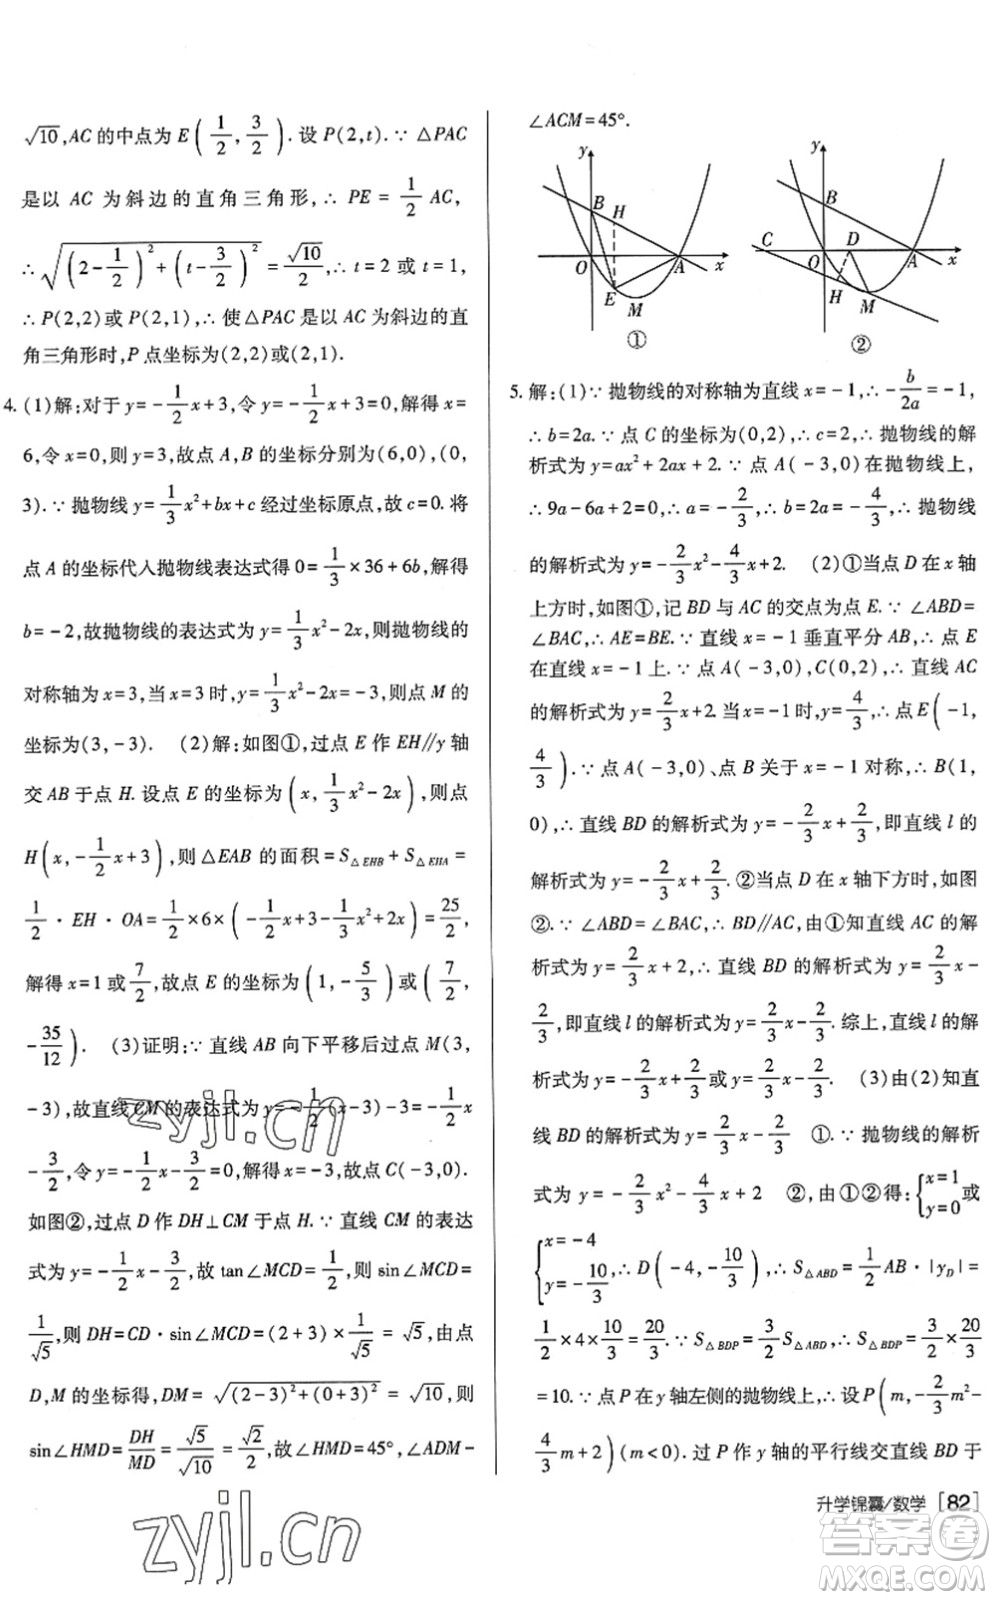 √10,AC的中点为E(1/2,3/2).设P(2,t).∵△PAC
是以AC为斜边的直角三角形,∴PE=1/2AC,
∴√((2-1/2)²+(t-3/2)²)=√10/2,∴t=2或t=1,
∴P(2,2)或P(2,1),∴使△PAC是以AC为斜边的直
角三角形时,P点坐标为(2,2)或(2,1).
4.(1)解:对于y=-1/2x+3,令y=-1/2x+3=0,解得x=
6,令x=0,则y=3,故点A,B的坐标分别为(6,0),(0,
3).∵抛物线y=1/3x²+bx+c经过坐标原点,故c=0.将
点A的坐标代入抛物线表达式得0=1/3×36+6b,解得
b=-2,故抛物线的表达式为y=1/3x²-2x,则抛物线的
对称轴为x=3,当x=3时,y=1/3x²-2x=-3,则点M的
坐标为(3,-3). (2)解:如图①,过点E作EH//y轴
交AB于点H.设点E的坐标为(x,1/3x²-2x),则点
H(x,-1/2x+3),则△EAB的面积=S△EHB+S△EHA=
1/2·EH·OA=1/2×6×(-1/2x+3-1/3x²+2x)=25/2,
解得x=1或7/2,故点E的坐标为(1,-5/3)或(7/2,
-35/12). (3)证明:∵直线AB向下平移后过点M(3,
-3),故直线CM的表达式为y=-1/2(x-3)-3=-1/2x
-3/2,令y=-1/2x-3/2=0,解得x=-3,故点C(-3,0).
如图②,过点D作DH⊥CM于点H.∵直线CM的表达
式为y=-1/2x-3/2,故tan∠MCD=1/2,则sin∠MCD=
1/√5,则DH=CD·sin∠MCD=(2+3)×1/√5=√5,由点
D,M的坐标得,DM=√((2-3)²+(0+3)²)=√10,则
sin∠HMD=DH/MD=√5/√10=√2/2,故∠HMD=45°,∠ADM-
∠ACM=45°.
y
B
H
O
A
x
E
M
①
y
B
C
D
O
A
x
H
M
②
5.解:(1)∵抛物线的对称轴为直线x=-1,∴-b/2a=-1,
∴b=2a.∵点C的坐标为(0,2),∴c=2,∴抛物线的解
析式为y=ax²+2ax+2.∵点A(-3,0)在抛物线上,
∴9a-6a+2=0,∴a=-2/3,∴b=2a=-4/3,∴抛物线
的解析式为y=-2/3x²-4/3x+2. (2)①当点D在x轴
上方时,如图①,记BD与AC的交点为点E.∵∠ABD=
∠BAC,∴AE=BE.∵直线x=-1垂直平分AB,∴点E
在直线x=-1上.∵点A(-3,0),C(0,2),∴直线AC
的解析式为y=2/3x+2.当x=-1时,y=4/3,∴点E(-1,
4/3).∵点A(-3,0)、点B关于x=-1对称,∴B(1,
0),∴直线BD的解析式为y=-2/3x+2/3,即直线l的
解析式为y=-2/3x+2/3.②当点D在x轴下方时,如图
②.∵∠ABD=∠BAC,∴BD//AC,由①知直线AC的解
析式为y=2/3x+2,∴直线BD的解析式为y=2/3x-
2/3,即直线l的解析式为y=2/3x-2/3.综上,直线l的解
析式为y=-2/3x+2/3或y=2/3x-2/3. (3)由(2)知直
线BD的解析式为y=2/3x-2/3 ①.∵抛物线的解析
式为y=-2/3x²-4/3x+2 ②,由①②得:{x=1 y=0或
{x=-4 y=-10/3,∴D(-4,-10/3),∴S△ABD=1/2AB·|yD|=
1/2×4×10/3=20/3.∵S△BDP=3/2S△ABD,∴S△BDP=3/2×20/3
=10.∵点P在y轴左侧的抛物线上,∴设P(m,-2/3m²-
4/3m+2)(m<0).过P作y轴的平行线交直线BD于
升学锦囊/数学 [82]
zyjl.cn
zyjl.cn
答案圈
MXQE.COM